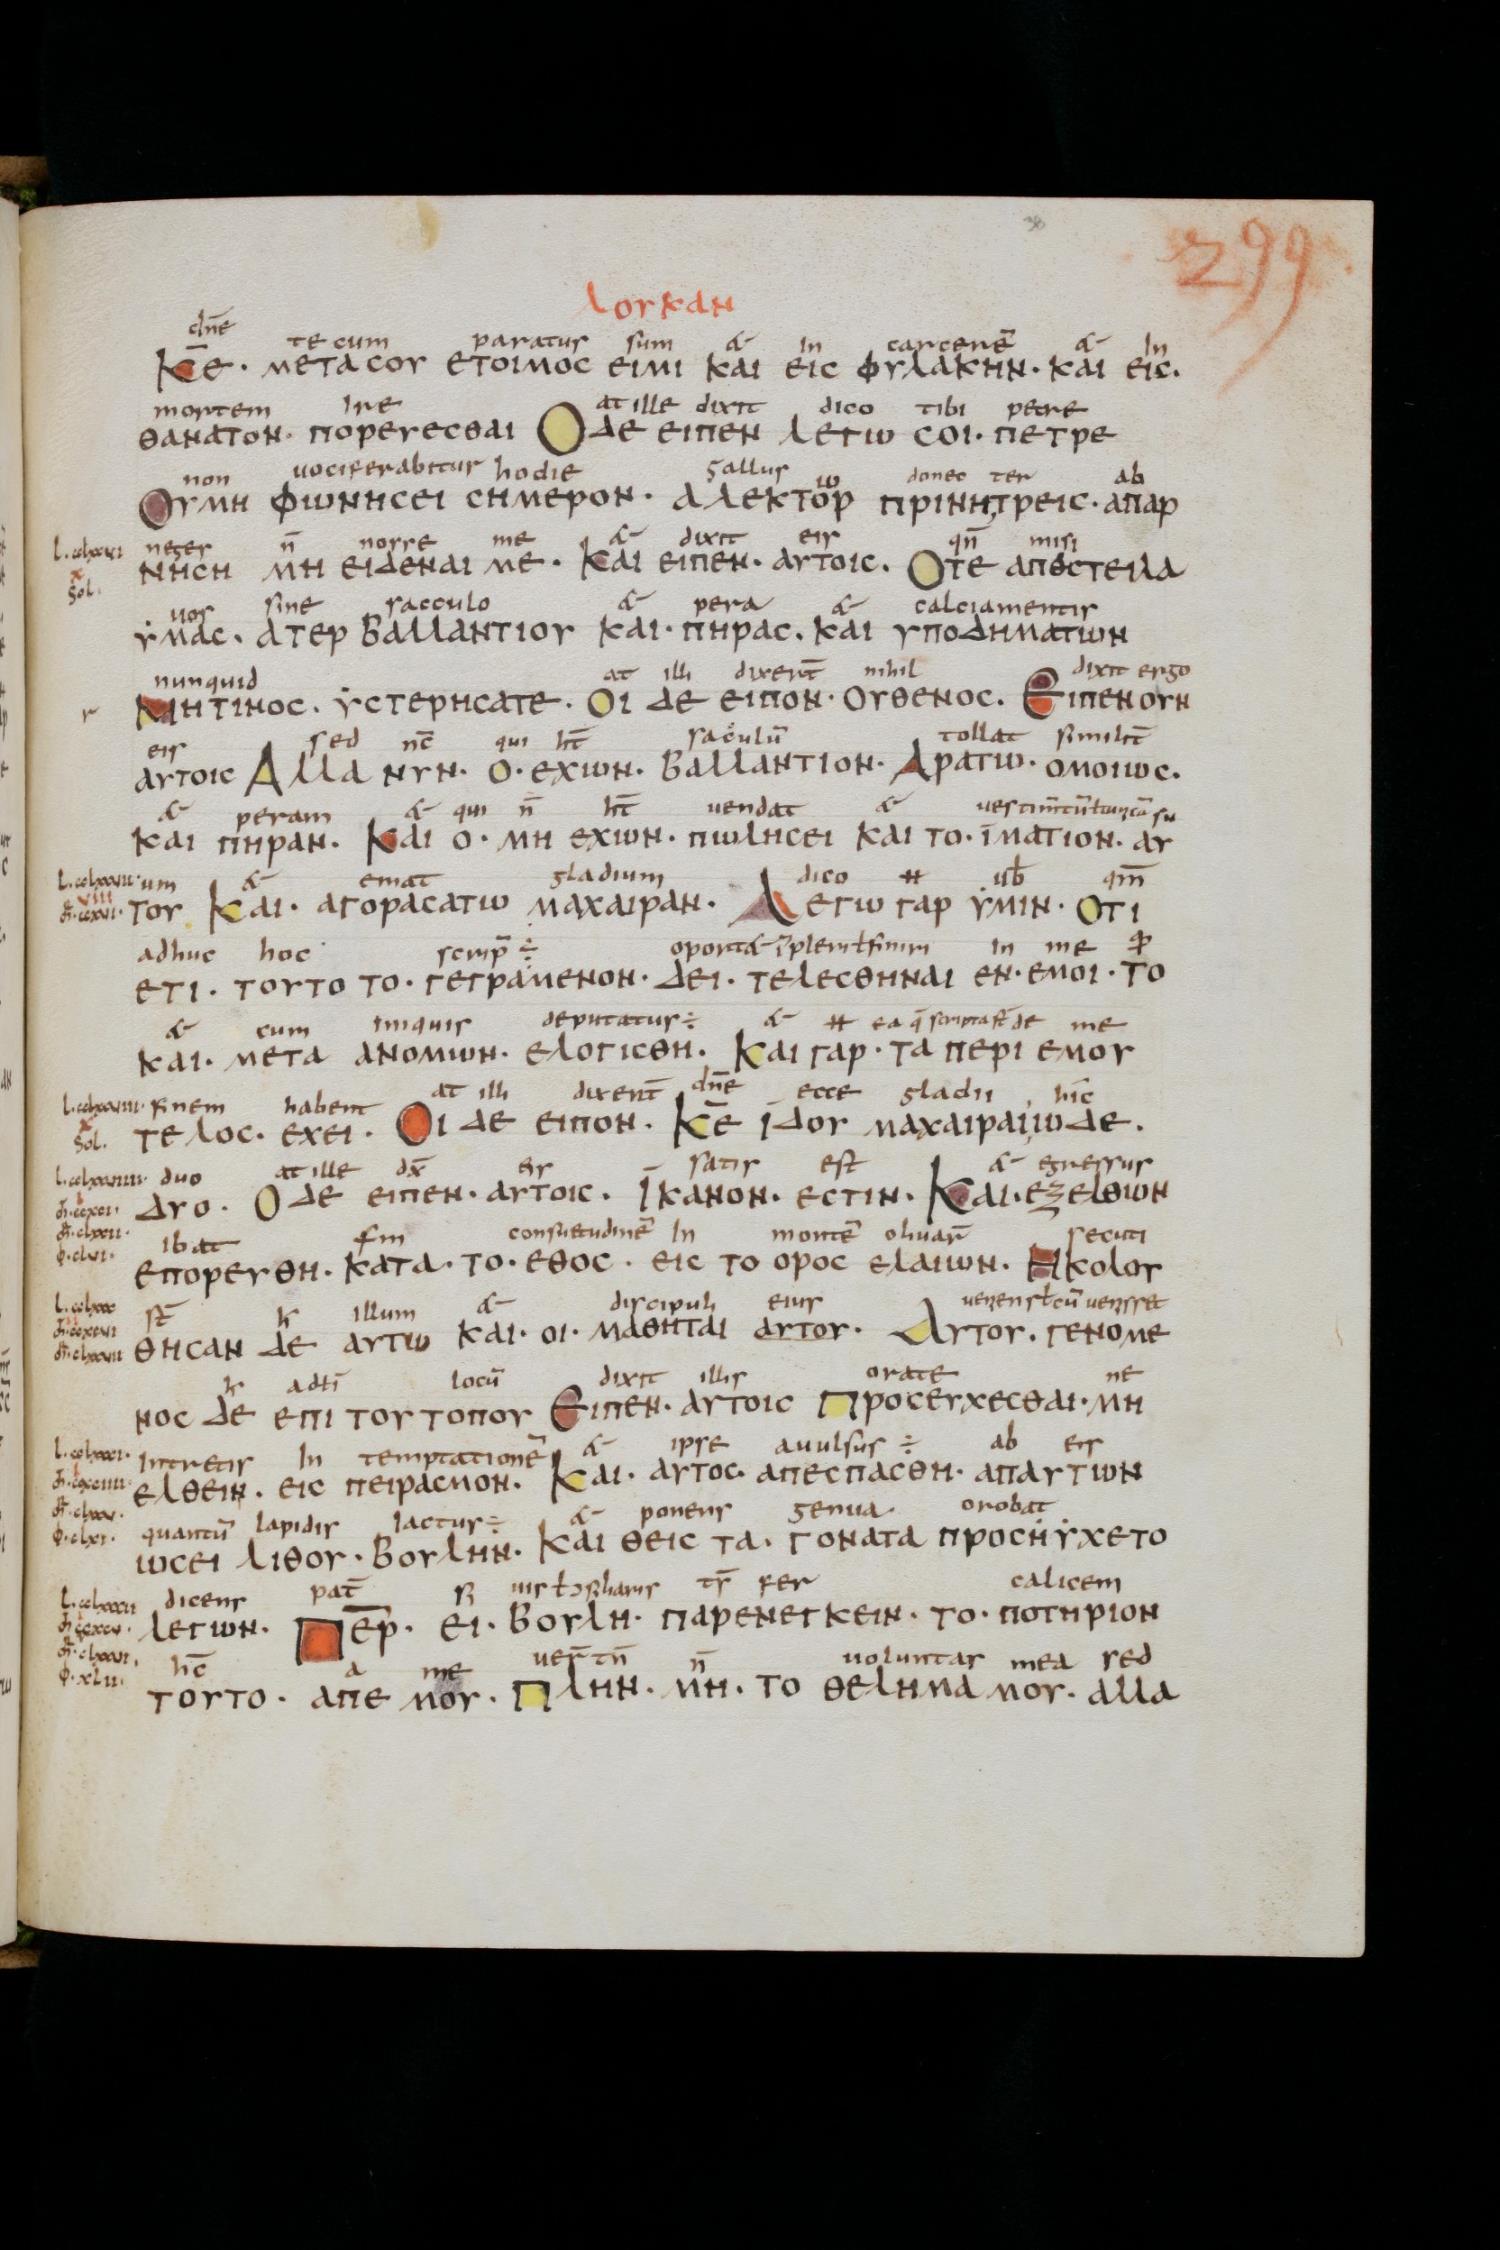 299
λουκαν
dn̄e tecum paratus sum & in carcerē & in
Κ̄Ε· ΜΕΤΑ ΣΟΥ ΕΤΟΙΜΟΣ ΕΙΜΙ ΚΑΙ ΕΙΣ ΦΥΛΑΚΗΝ· ΚΑΙ ΕΙΣ·
mortem ire at ille dixit dico tibi petre
ΘΑΝΑΤΟΝ· ΠΟΡΕΥΕΣΘΑΙ Ο ΔΕ ΕΙΠΕΝ ΛΕΓΩ ΣΟΙ· ΠΕΤΡΕ
non vociferabitur hodie gallus donec ter ab
ΟΥ ΜΗ ΦΩΝΗΣΕΙ ΣΗΜΕΡΟΝ· ΑΛΕΚΤΟΡ ΠΡΙΝΗ ΤΡΕΙΣ· ΑΠΑΡ
neger n̄ norre me & dixit eis qn̄ misi
ΝΗΣΗ ΜΗ ΕΙΔΕΝΑΙ ΜΕ· ΚΑΙ ΕΙΠΕΝ· ΑΥΤΟΙΣ· ΟΤΕ ΑΠΕΣΤΕΙΛΑ
vos sine sacculo & pera & calciamentis
ΥΜΑΣ· ΑΤΕΡ ΒΑΛΛΑΝΤΙΟΥ ΚΑΙ· ΠΗΡΑΣ· ΚΑΙ ΥΠΟΔΗΜΑΤΩΝ
nunquid at illi dixer̄t nihil dixit ergo
ΜΗ ΤΙΝΟΣ· ΥΣΤΕΡΗΣΑΤΕ· ΟΙ ΔΕ ΕΙΠΟΝ· ΟΥΘΕΝΟΣ· ΕΙΠΕΝ ΟΥΝ
eis sed nc̄ qui ht̄ sacculū tollat similit̄
ΑΥΤΟΙΣ ΑΛΛΑ ΝΥΝ· Ο· ΕΧΩΝ· ΒΑΛΛΑΝΤΙΟΝ· ΑΡΑΤΩ· ΟΜΟΙΩΣ·
& peram & qui n̄ ht̄ vendat &
ΚΑΙ ΠΗΡΑΝ· ΚΑΙ Ο· ΜΗ ΕΧΩΝ· ΠΩΛΗΣΕΙ ΚΑΙ ΤΟ· ΙΜΑΤΙΟΝ· ΑΥ
um & emat gladium dico vb̄ qm̄
ΤΟΥ ΚΑΙ· ΑΓΟΡΑΣΑΤΩ ΜΑΧΑΙΡΑΝ· ΛΕΓΩ ΓΑΡ ΥΜΙΝ· ΟΤΙ
adhuc hoc scrip̄ ÷ in me
ΕΤΙ· ΤΟΥΤΟ ΤΟ· ΓΕΓΡΑΜΕΝΟΝ· ΔΕΙ· ΤΕΛΕΣΘΗΝΑΙ ΕΝ· ΕΜΟΙ· ΤΟ
& cum iniquis deputatus ÷ & ea q̄ scripta st̄ de me
ΚΑΙ· ΜΕΤΑ ΑΝΟΜΩΝ· ΕΛΟΓΙΣΘΗ· ΚΑΙ ΓΑΡ· ΤΑ ΠΕΡΙ ΕΜΟΥ
finem habent at illi dixer̄t dn̄e ecce gladii hic
ΤΕΛΟΣ· ΕΧΕΙ· ΟΙ ΔΕ ΕΙΠΟΝ· Κ̄Ε ΙΔΟΥ ΜΑΧΑΙΡΑΙ ΩΔΕ·
duo at ille dx̄ eis satis est & egressus
ΔΥΟ· Ο ΔΕ ΕΙΠΕΝ· ΑΥΤΟΙΣ· ΙΚΑΝΟΝ· ΕΣΤΙΝ· ΚΑΙ· ΕΞΕΛΘΩΝ
ibat consuetudinē in montē olivar̄ secuti
ΕΠΟΡΕΥΘΗ· ΚΑΤΑ· ΤΟ· ΕΘΟΣ· ΕΙΣ ΤΟ ΟΡΟΣ ΕΛΑΙΩΝ· ΗΚΟΛΟΥ
st̄ illum & discipuli eius
ΘΗΣΑΝ ΔΕ ΑΥΤΩ ΚΑΙ· ΟΙ· ΜΑΘΗΤΑΙ ΑΥΤΟΥ· ΑΥΤΟΥ· ΓΕΝΟΜΕ
locū dixit illis orate ne
ΝΟΣ ΔΕ ΕΠΙ ΤΟΥ ΤΟΠΟΥ ΕΙΠΕΝ· ΑΥΤΟΙΣ ΠΡΟΣΕΥΧΕΣΘΑΙ· ΜΗ
intretis in temptationē & ipse avulsus ÷ ab eis
ΕΛΘΕΙΝ· ΕΙΣ ΠΕΙΡΑΣΜΟΝ· ΚΑΙ· ΑΥΤΟΣ· ΑΠΕΣΠΑΣΘΗ· ΑΠΑΥΤΩΝ
quantū lapidis iactus ÷ & ponens genua orobat
ΩΣΕΙ ΛΙΘΟΥ· ΒΟΥΛΗΝ· ΚΑΙ ΘΕΙΣ ΤΑ· ΓΟΝΑΤΑ ΠΡΟΣΗΥΧΕΤΟ
dicens pat̄ si vis fer calicem
ΛΕΓΩΝ· Π̄Ε̄Ρ· ΕΙ· ΒΟΥΛΗ· ΠΑΡΕΝΕΓΚΕΙΝ· ΤΟ· ΠΟΤΗΡΙΟΝ
hc̄ a me ver̄tn̄ n̄ voluntas mea sed
ΤΟΥΤΟ· ΑΠΕ ΜΟΥ· ΠΛΗΝ· ΜΗ· ΤΟ ΘΕΛΗΜΑ ΜΟΥ· ΑΛΛΑ